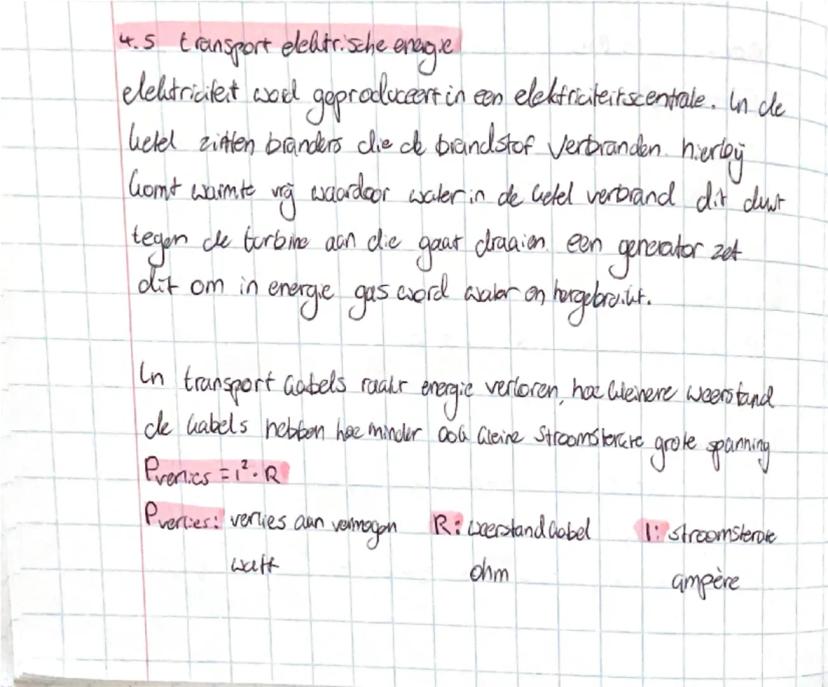 4.5 transport elektrische energie
elektriciteit word geproduceert in een elektriciteitscentrale. In de
ketel zitten branders die de brandstof verbranden. hierbij
komt warmte vrij waardoor water in de ketel verbrand dit duwt
tegen de turbine aan die gaat draaien. een generator zet
dit om in energie gas word water en hergebruikt.
In transport kabels raakt energie verloren, hoe kleinere weerstand
de kabels hebben hoe minder ook kleine stroomsterkte grote spanning
Pverlies = i². R
Pverlies: verlies aan vermogen R: weerstand kabel I: stroomsterkte
watt ohm ampère